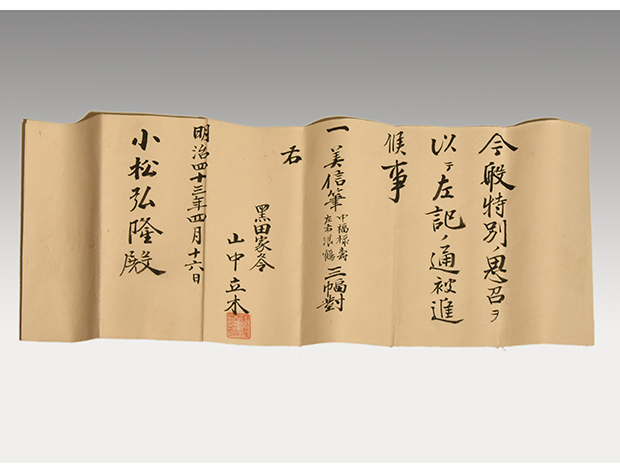 今般特別ノ思召ヲ
以テ左記ノ通被進
候事
一美信筆 中福禄寿 左右浪鶴 三幅對
右
黒田家令
山中立木
明治四十三年四月十六日
小松弘隆殿